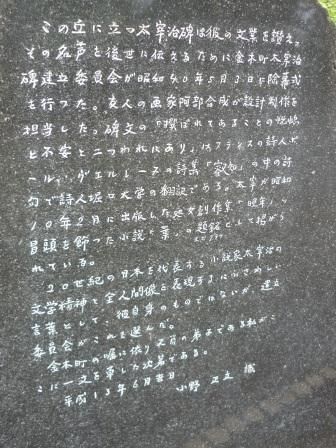 この丘に立つ太宰治碑は彼の文業を讃え、
その名声を後世に伝えるために金木町太宰治
碑建立委員会が昭和40年5月3日に除幕式
を行った。友人の画家阿部合成が設計制作を
担当した。碑文の「撰ばれてあることの恍惚
と不安と二つわれにあり」はフランスの詩人ポ
ール・ヴェルレーヌの詩集「叡知」の中の詩
句で詩人堀口大学の翻訳である。太宰が昭和
10年2月に出版した処女創作集「晩年」の
冒頭を飾った小説「葉」の題銘として掲げら
エピグラフ
れている。
20世紀の日本を代表する小説家太宰治の
文学精神と全人間像を表現するにふさわしい
言葉として、彼自身のものではないが、建立
委員会がこれを選んだ。
金木町の嘱に依り又月の弟子である私がこ
こに一文を草した次第である。
平成13年6月吉日
小野 正文 識